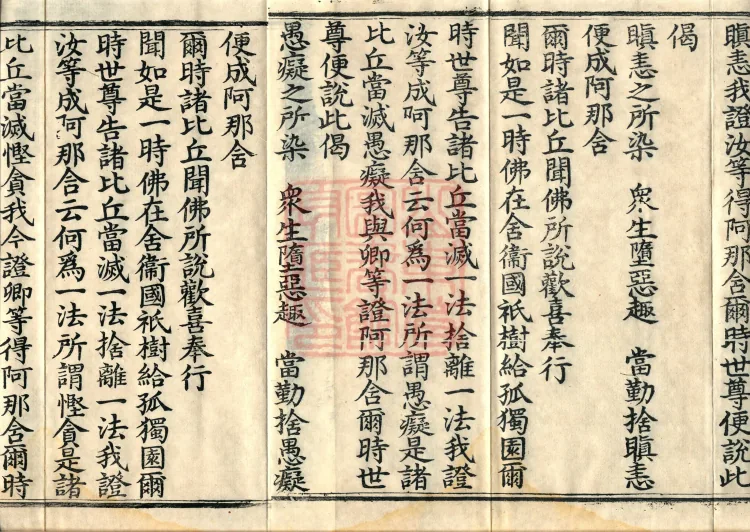 瞋恚我證汝等得阿那含爾時世尊便說此
偈
瞋恚之所染　衆生墮惡趣　當勤捨瞋恚
便成阿那含
爾時諸比丘聞佛所說歡喜奉行
聞如是一時佛在舍衞國祇樹給孤獨園爾
時世尊告諸比丘當滅一法捨離一法我證
汝等成阿那含云何爲一法所謂愚癡是諸
比丘當滅愚癡我與卿等證阿那含爾時世
尊便說此偈
愚癡之所染　衆生墮惡趣　當勤捨愚癡
便成阿那含
爾時諸比丘聞佛所說歡喜奉行
聞如是一時佛在舍衞國祇樹給孤獨園爾
時世尊告諸比丘當滅一法捨離一法我證
汝等成阿那含云何爲一法所謂慳貪是諸
比丘當滅慳貪我今證卿等得阿那含爾時